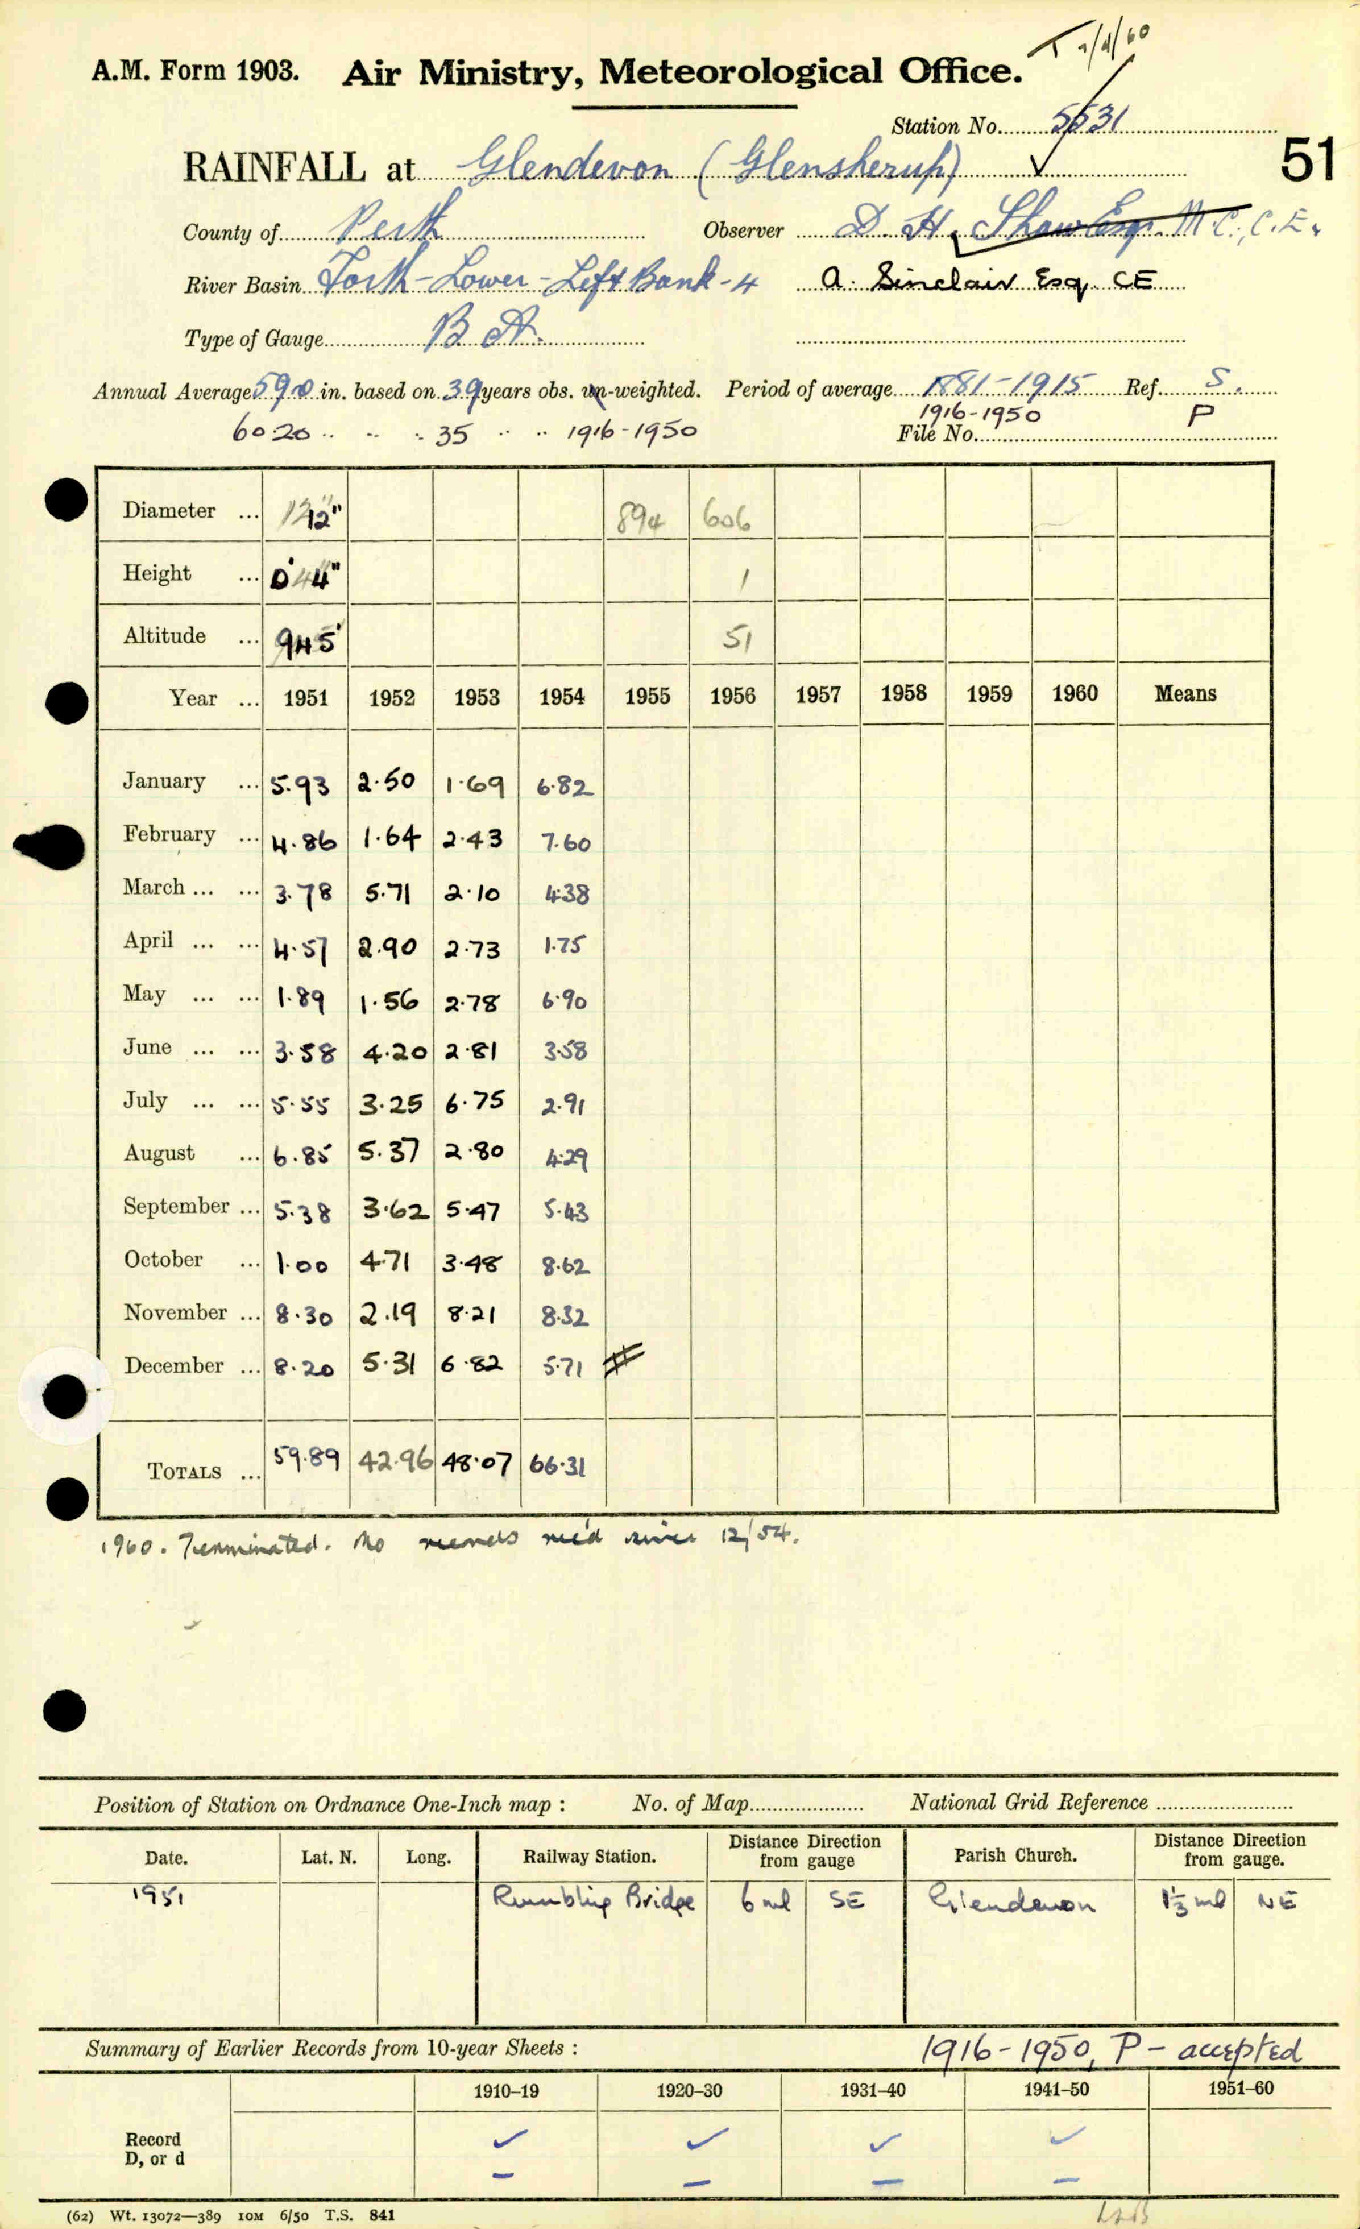 T 7/4/60
A.M. Form 1903. Air Ministry, Meteorological Office.
Station No. 5531
51
RAINFALL at Glendevon (Glensherup)
County of Perth Observer D. H. Shaw Esq. M.C., C.E.
River Basin Forth-Lower-Left Bank-4 A. Sinclair Esq. CE
Type of Gauge B A.
Annual Average 59.0 in. based on 39 years obs. un-weighted. Period of average 1881-1915 Ref. S.
60.20 .. .. .. 35 .. .. 1916-1950 1916-1950 P
File No.
Diameter ... 12" 894 606
Height ... 0' 4" 1
Altitude ... 945' 51
Year ... 1951 1952 1953 1954 1955 1956 1957 1958 1959 1960 Means
January ... 5.93 2.50 1.69 6.82
February ... 4.86 1.64 2.43 7.60
March ... ... 3.78 5.71 2.10 4.38
April ... ... 4.57 2.90 2.73 1.75
May ... ... 1.89 1.56 2.78 6.90
June ... ... 3.58 4.20 2.81 3.58
July ... ... 5.55 3.25 6.75 2.91
August ... 6.85 5.37 2.80 4.29
September ... 5.38 3.62 5.47 5.43
October ... 1.00 4.71 3.48 8.62
November ... 8.30 2.19 8.21 8.32
December ... 8.20 5.31 6.82 5.71
TOTALS ... 59.89 42.96 48.07 66.31
1960. Terminated. No records rec'd since 12/54.
Position of Station on Ordnance One-Inch map : No. of Map National Grid Reference
Date. Lat. N. Long. Railway Station. Distance Direction from gauge Parish Church. Distance Direction from gauge.
1951 Rumbling Bridge 6 ml SE Glendevon 1⅓ ml NE
Summary of Earlier Records from 10-year Sheets : 1916-1950, P - accepted
1910–19 1920–30 1931–40 1941–50 1951–60
Record ✓ ✓ ✓ ✓
D, or d – – – –
(62) Wt. 13072—389 10M 6/50 T.S. 841